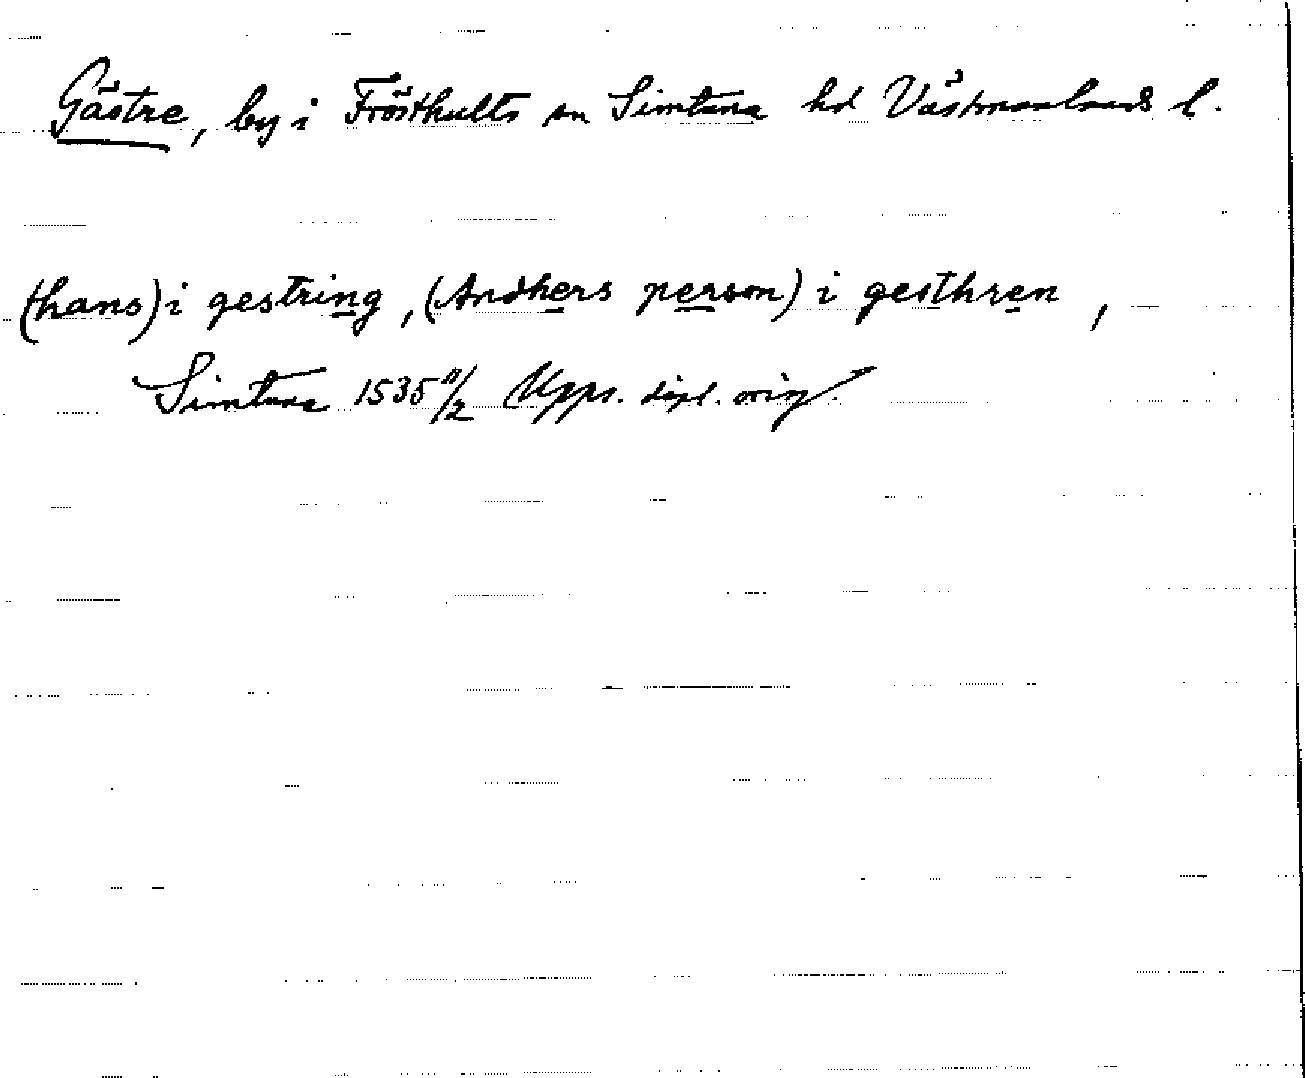 Gästre, by i Frösthults sn Simtuna hd Västmanlands l.
(hans) i gestring, (Andhers person) i gesthren,
Simtuna 1535 11/2 Upps. dipl. orig.